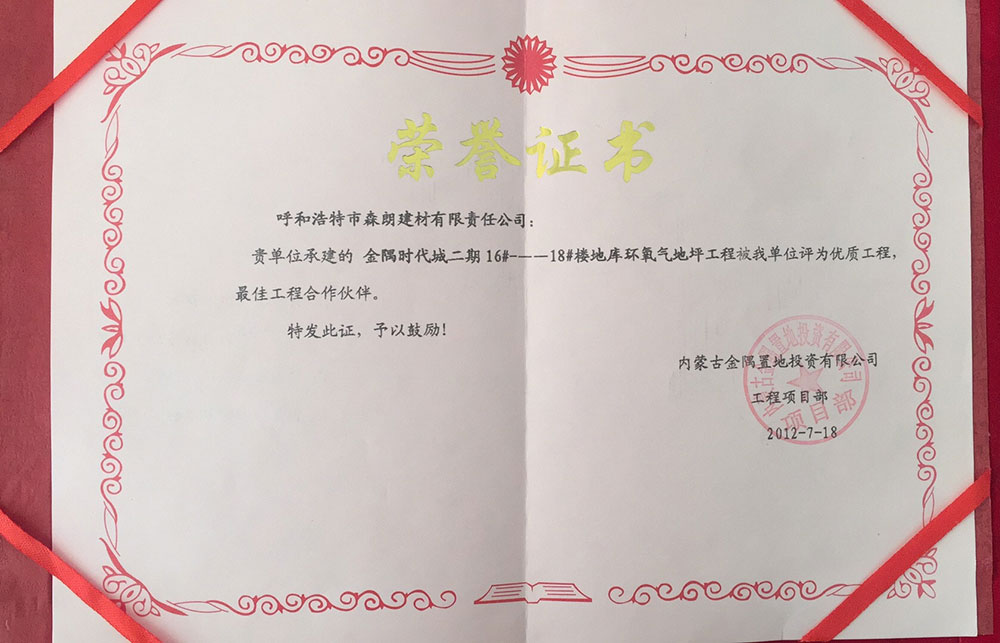 荣誉证书
呼和浩特市森朗建材有限责任公司：
贵单位承建的 金隅时代城二期16#-——18#楼地库环氧气地坪工程被我单位评为优质工程，
最佳工程合作伙伴。
特发此证，予以鼓励！
内蒙古金隅置地投资有限公司
工程项目部
2012-7-18
项目部